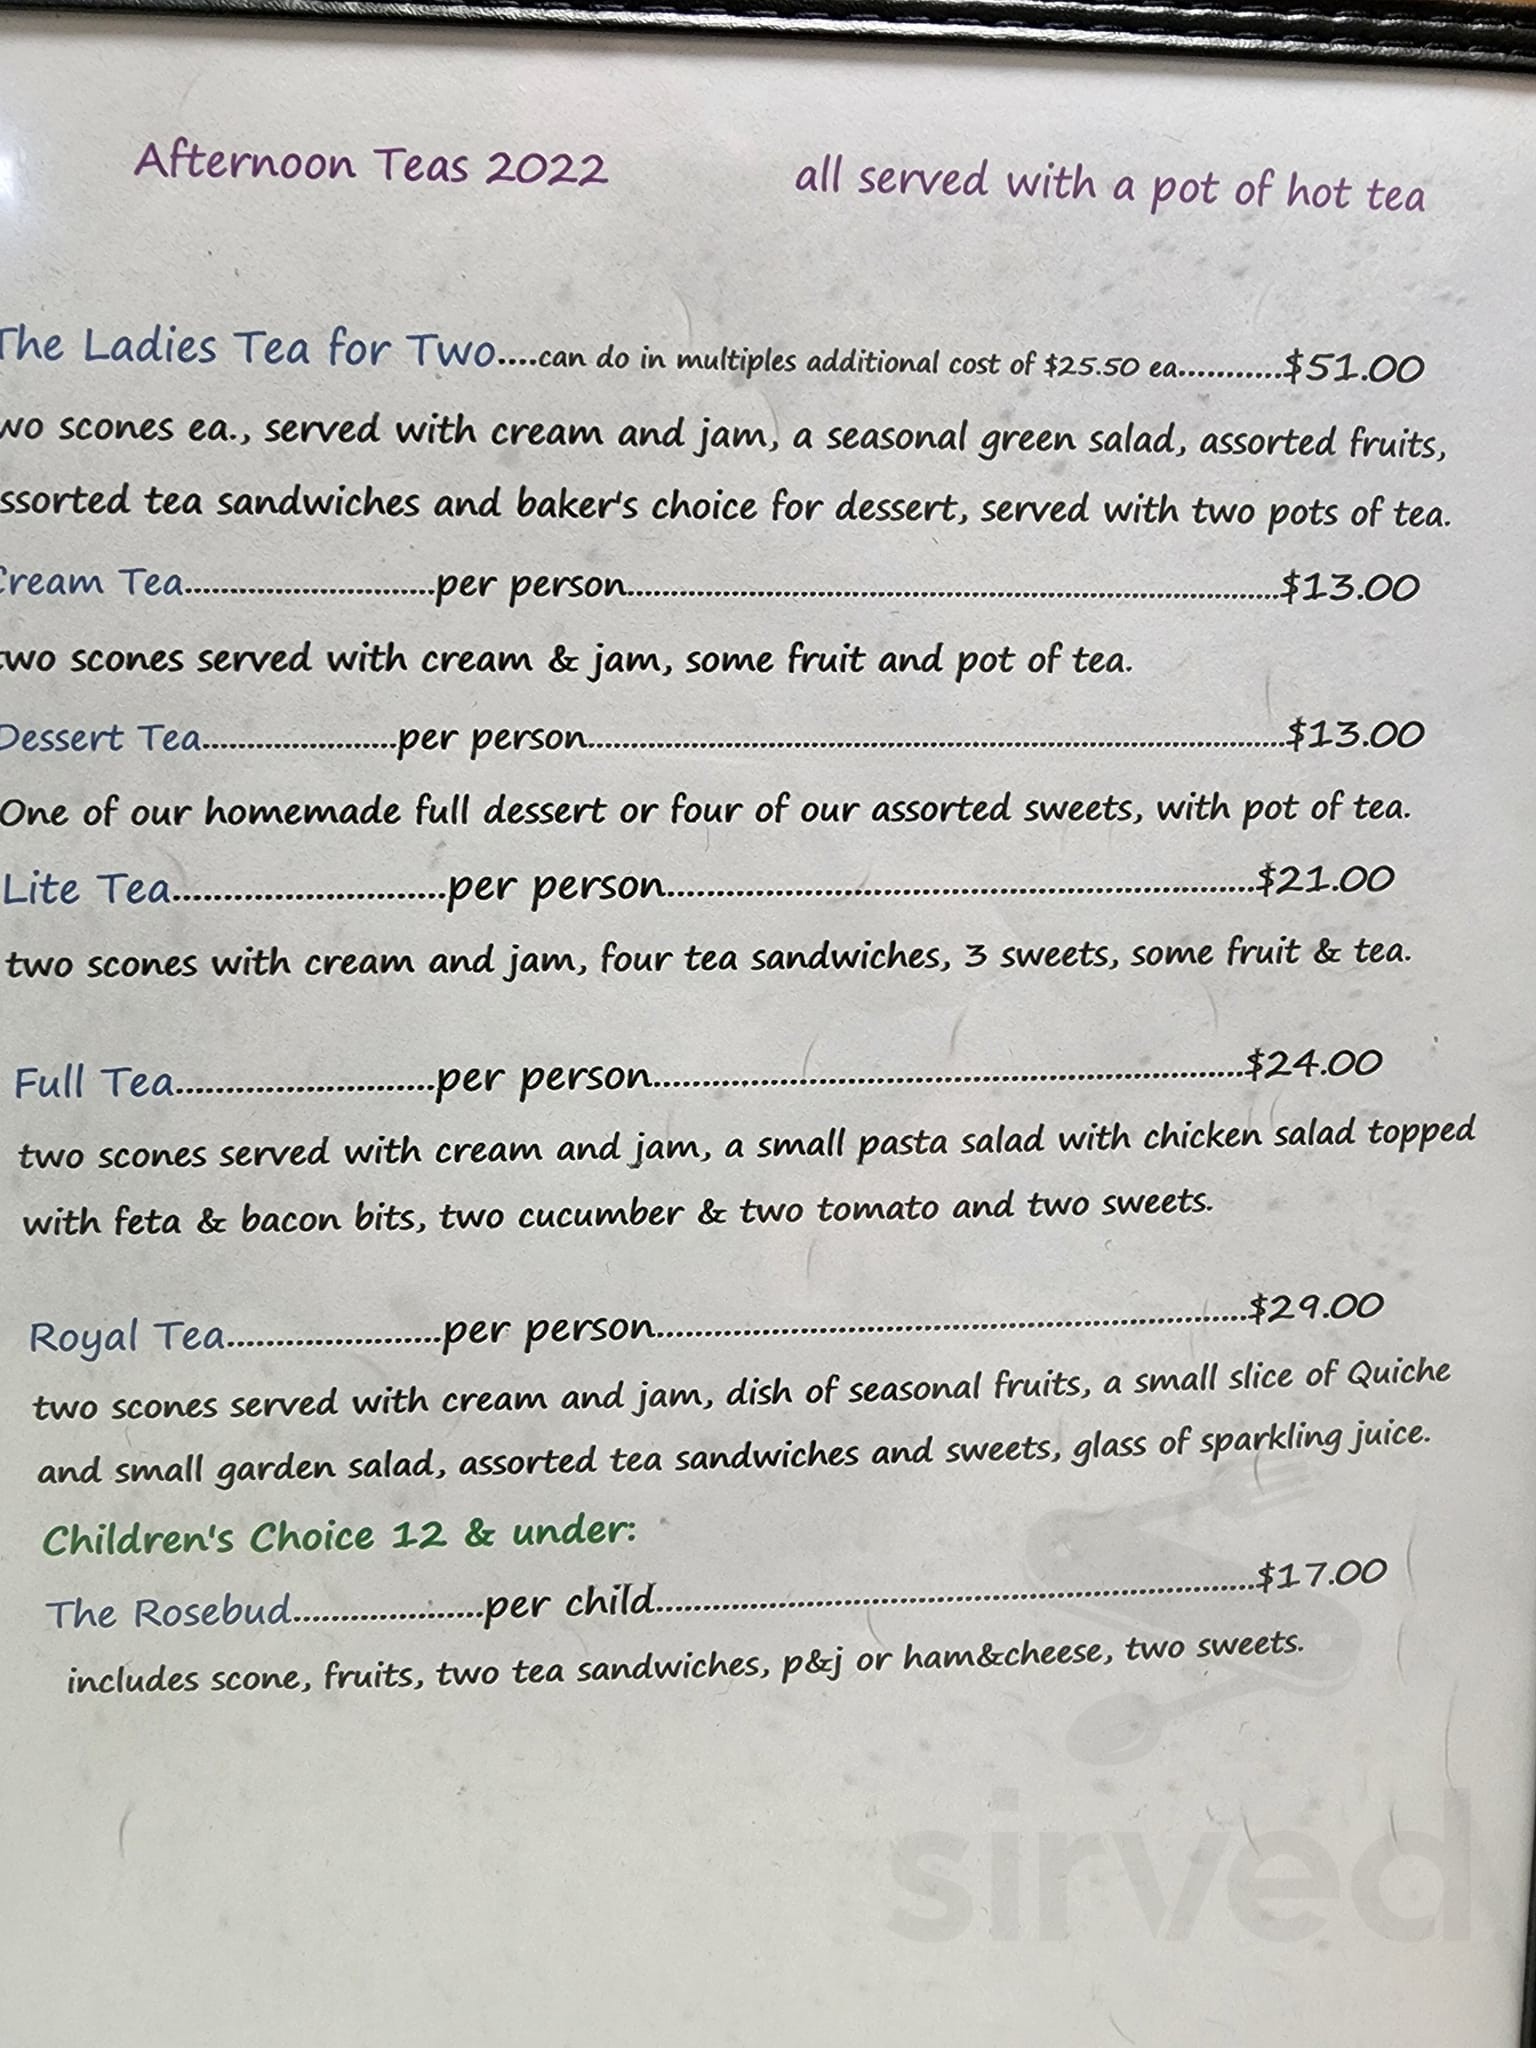 Afternoon Teas 2022 all served with a pot of hot tea
The Ladies Tea for Two....can do in multiples additional cost of $25.50 ea............$51.00
wo scones ea., served with cream and jam, a seasonal green salad, assorted fruits,
ssorted tea sandwiches and baker's choice for dessert, served with two pots of tea.
Cream Tea...........................per person.......................................................................$13.00
two scones served with cream & jam, some fruit and pot of tea.
Dessert Tea.....................per person............................................................................$13.00
One of our homemade full dessert or four of our assorted sweets, with pot of tea.
Lite Tea...........................per person...........................................................$21.00
two scones with cream and jam, four tea sandwiches, 3 sweets, some fruit & tea.
Full Tea..........................per person...........................................................$24.00
two scones served with cream and jam, a small pasta salad with chicken salad topped
with feta & bacon bits, two cucumber & two tomato and two sweets.
Royal Tea......................per person...........................................................$29.00
two scones served with cream and jam, dish of seasonal fruits, a small slice of Quiche
and small garden salad, assorted tea sandwiches and sweets, glass of sparkling juice.
Children's Choice 12 & under:
The Rosebud...................per child............................................................$17.00
includes scone, fruits, two tea sandwiches, p&j or ham&cheese, two sweets.
sirved